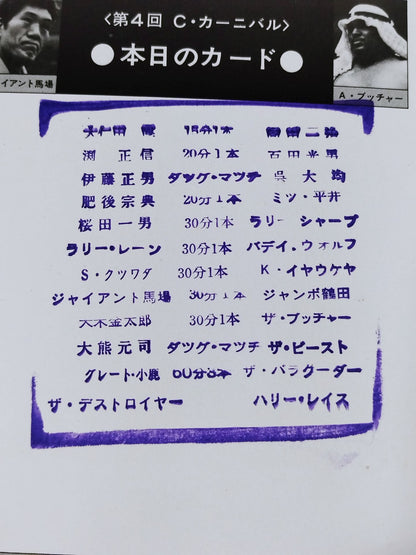 〈第4回 C・カーニバル〉
●本日のカード●
イアント馬場
A・ブッチャー
15分1本
渕 正信 20分1本 百田光男
伊藤正男 タッグ・マッチ 呉 大均
肥後宗典 20分1本 ミツ・平井
桜田一男 30分1本 ラリー シャープ
ラリー・レーン 30分1本 バディ・ウォルフ
S・クツワダ 30分1本 K・イヤウケヤ
ジャイアント馬場 30分1本 ジャンボ鶴田
大木金太郎 30分1本 ザ・ブッチャー
大熊元司 タッグ・マッチ ザ・ビースト
グレート・小鹿 60分3本 ザ・バラクーダー
ザ・デストロイヤー ハリー・レイス